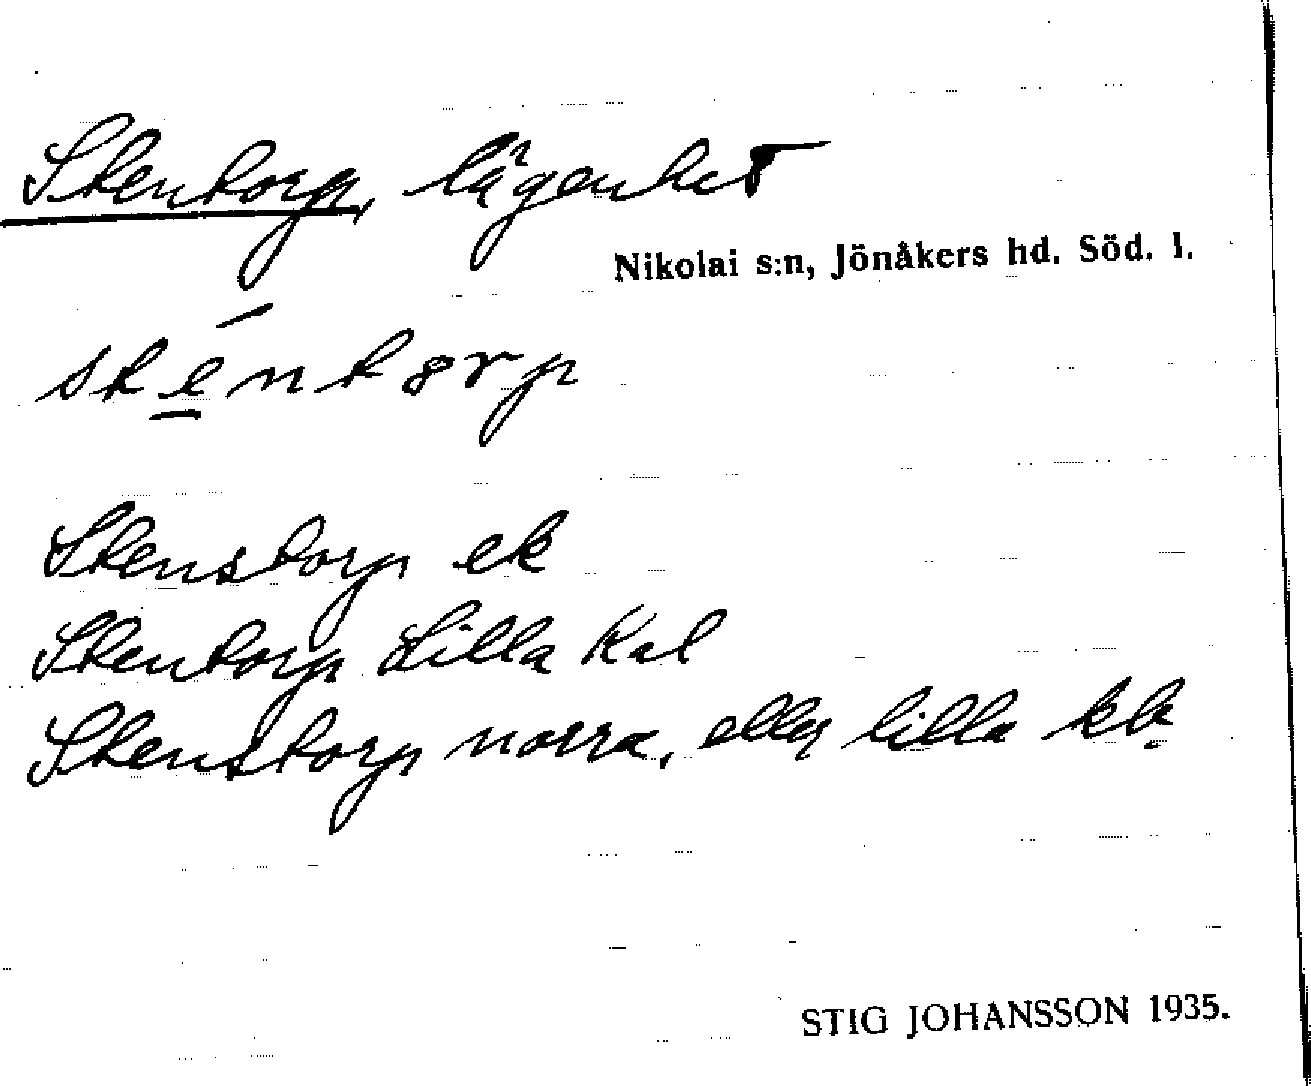 Stentorp, lägenhet
Nikolai s:n, Jönåkers hd. Söd. l.
sténtorp
Stenstorp ek
Stentorp Lilla Kal
Stenstorp norra, eller lilla kb.
STIG JOHANSSON 1935.